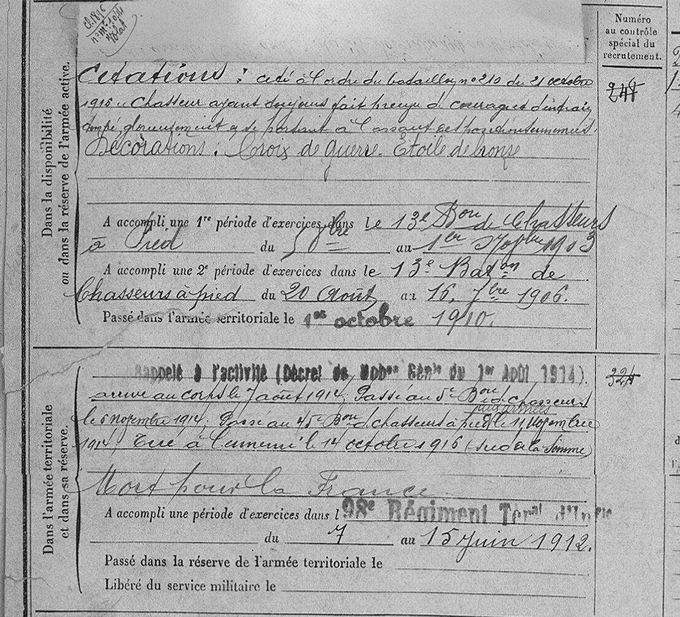 Cl. 1916
Numéro
au contrôle
spécial du
recrutement.
Dans la disponibilité
ou dans la réserve de l'armée active.
Citations : cité à l'ordre du bataillon no 210 du 21 octobre
1916 "Chasseur ayant toujours fait preuve de courage et d'entrain
tombé glorieusement en se portant à l'assaut des positions ennemies.
Décorations : Croix de guerre. Étoile de bronze
241
A accompli une 1re période d'exercices dans le 13e Bon de Chasseurs
à Pied du 5 8bre au 1er 9bre 1903
A accompli une 2e période d'exercices dans le 13e Baton de
Chasseurs à pied du 20 Août au 16 7bre 1906.
Passé dans l'armée territoriale le 1er octobre 1910.
Dans l'armée territoriale
et dans sa réserve.
Rappelé à l'activité (Décret de Mobon Génle du 1er Août 1914).
324
arrivé au corps le 7 août 1914, Passé au 5e Bon de chasseurs
le 6 novembre 1914, Passé au 45e Bon de chasseurs à pied le 11 novembre
1914, Tué à l'ennemi le 14 octobre 1916 (sud de la Somme)
Mort pour la France
A accompli une période d'exercices dans l 98e Régiment Teral d'Infie
du 7 au 15 juin 1912.
Passé dans la réserve de l'armée territoriale le
Libéré du service militaire le